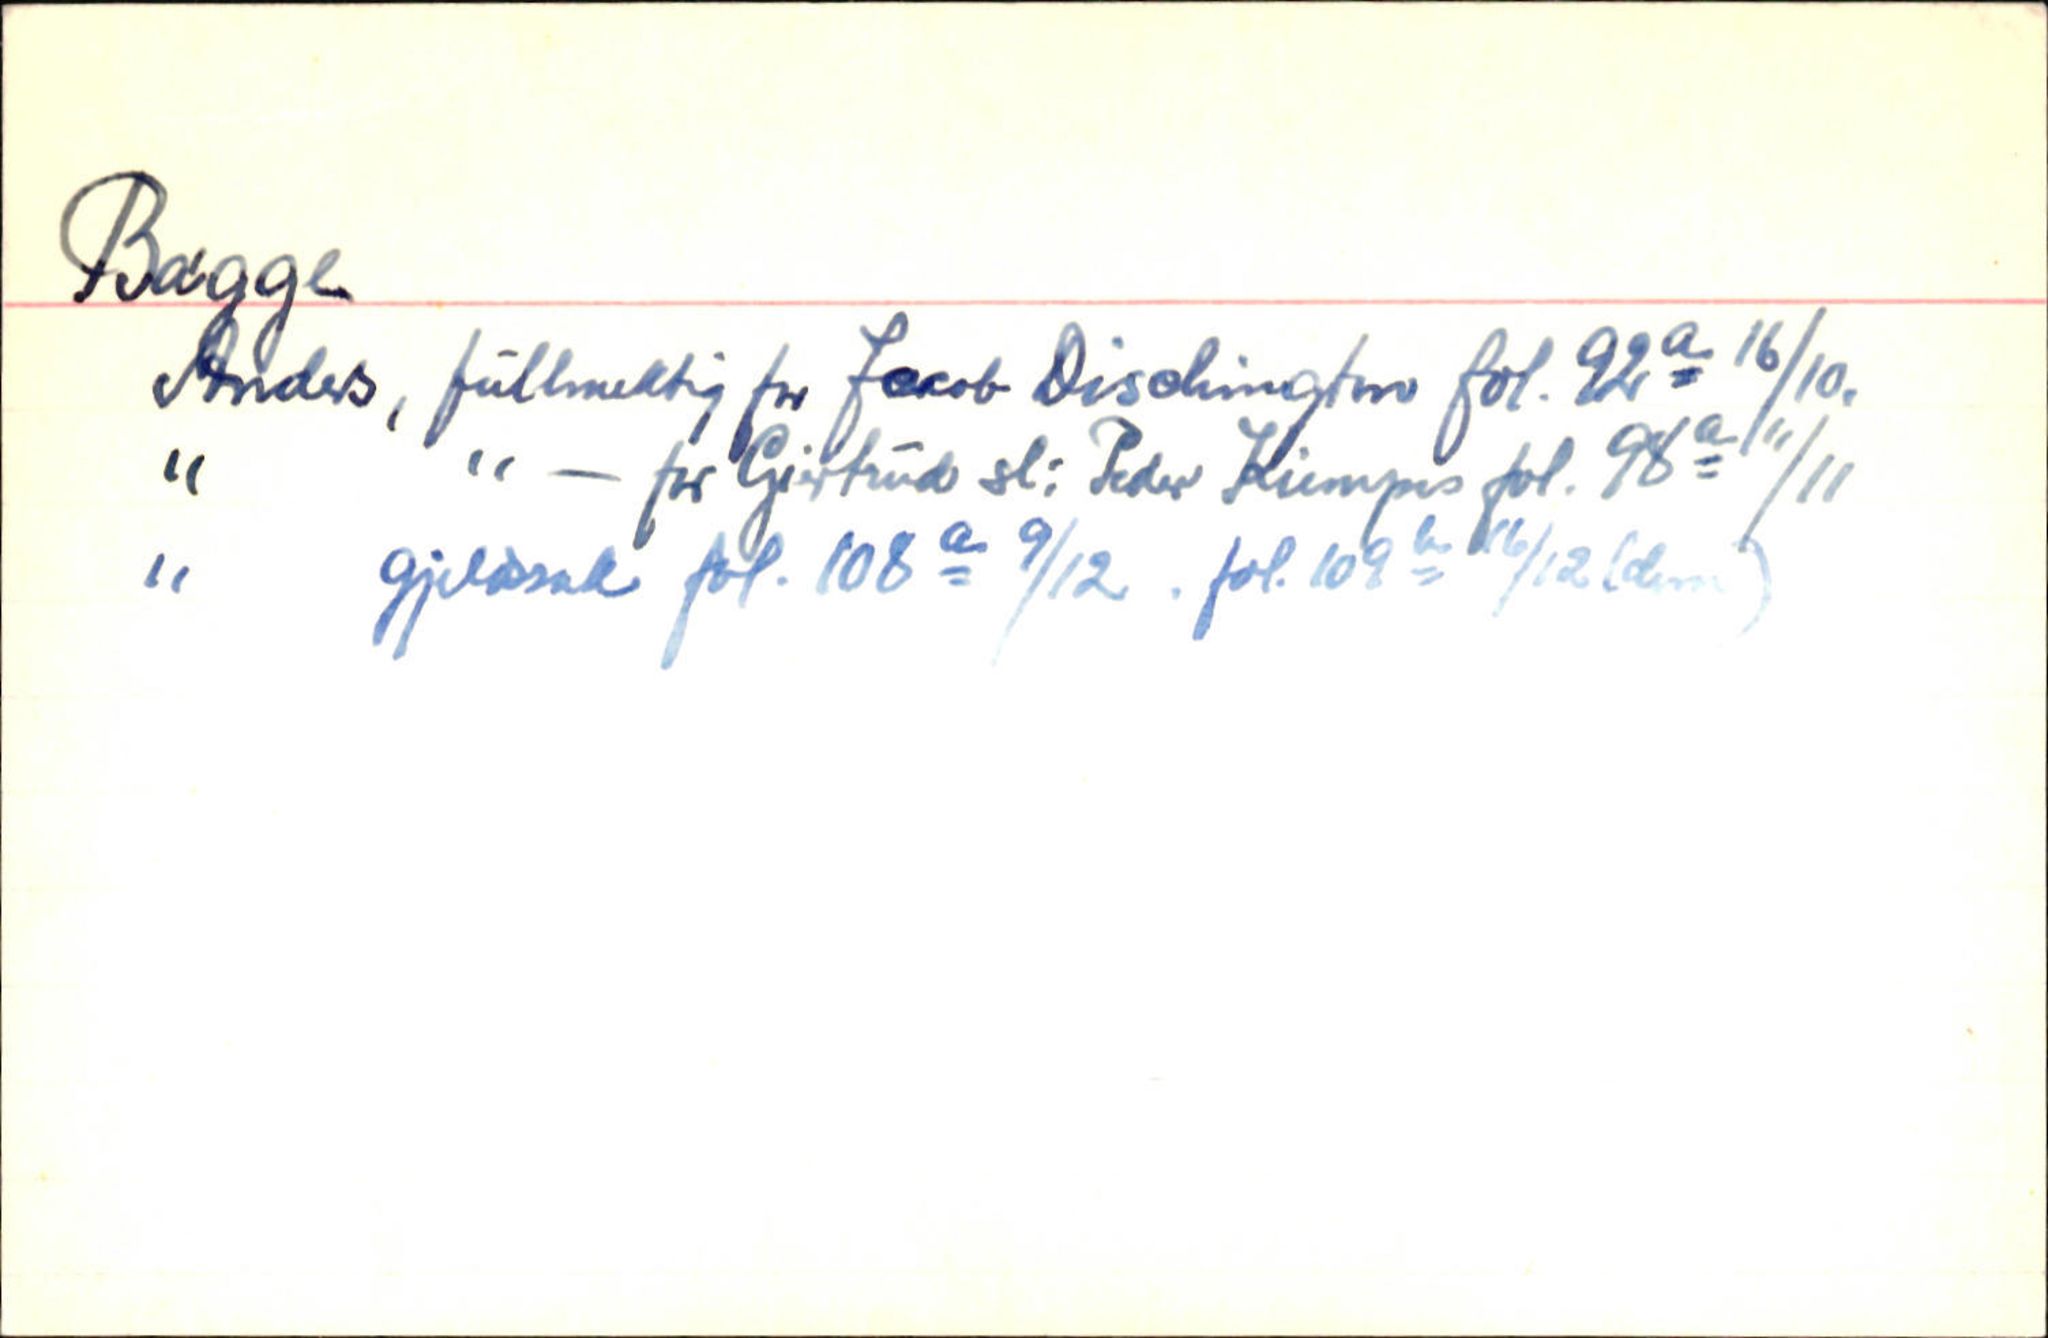 Bagge
Anders, fullmektig for Jacob Dischington fol. 92a 16/10.
" " — for Giertrud sl: Peder Kiempes fol. 98a 11/11
" gjeldssak fol. 108a 9/12. fol. 109b 16/12 (dom)